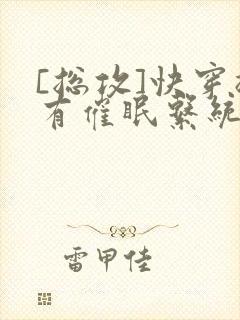 [总攻]快穿
有催眠系统
雷甲佳